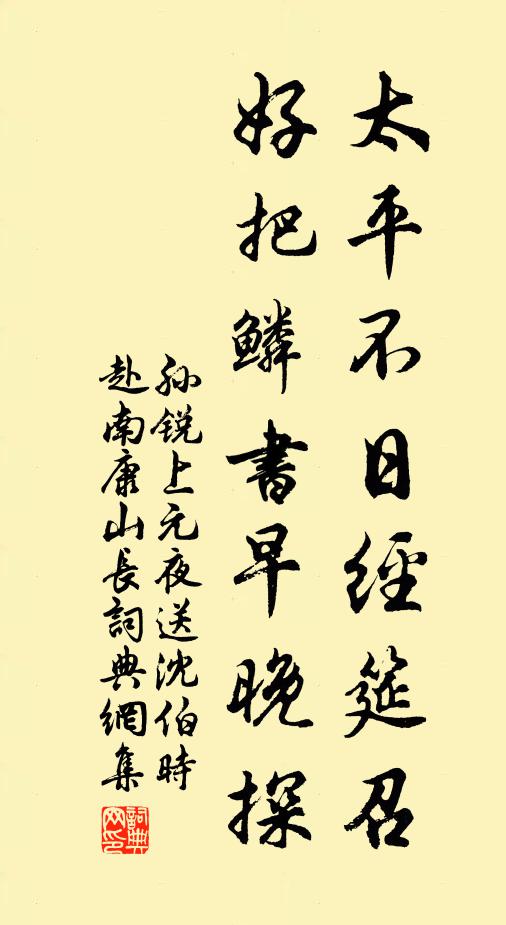 太平不日經筵召
好把鱗書早晚探
孙锐上元夜送沈伯時
赴南康山長詞典網集
詞典网印